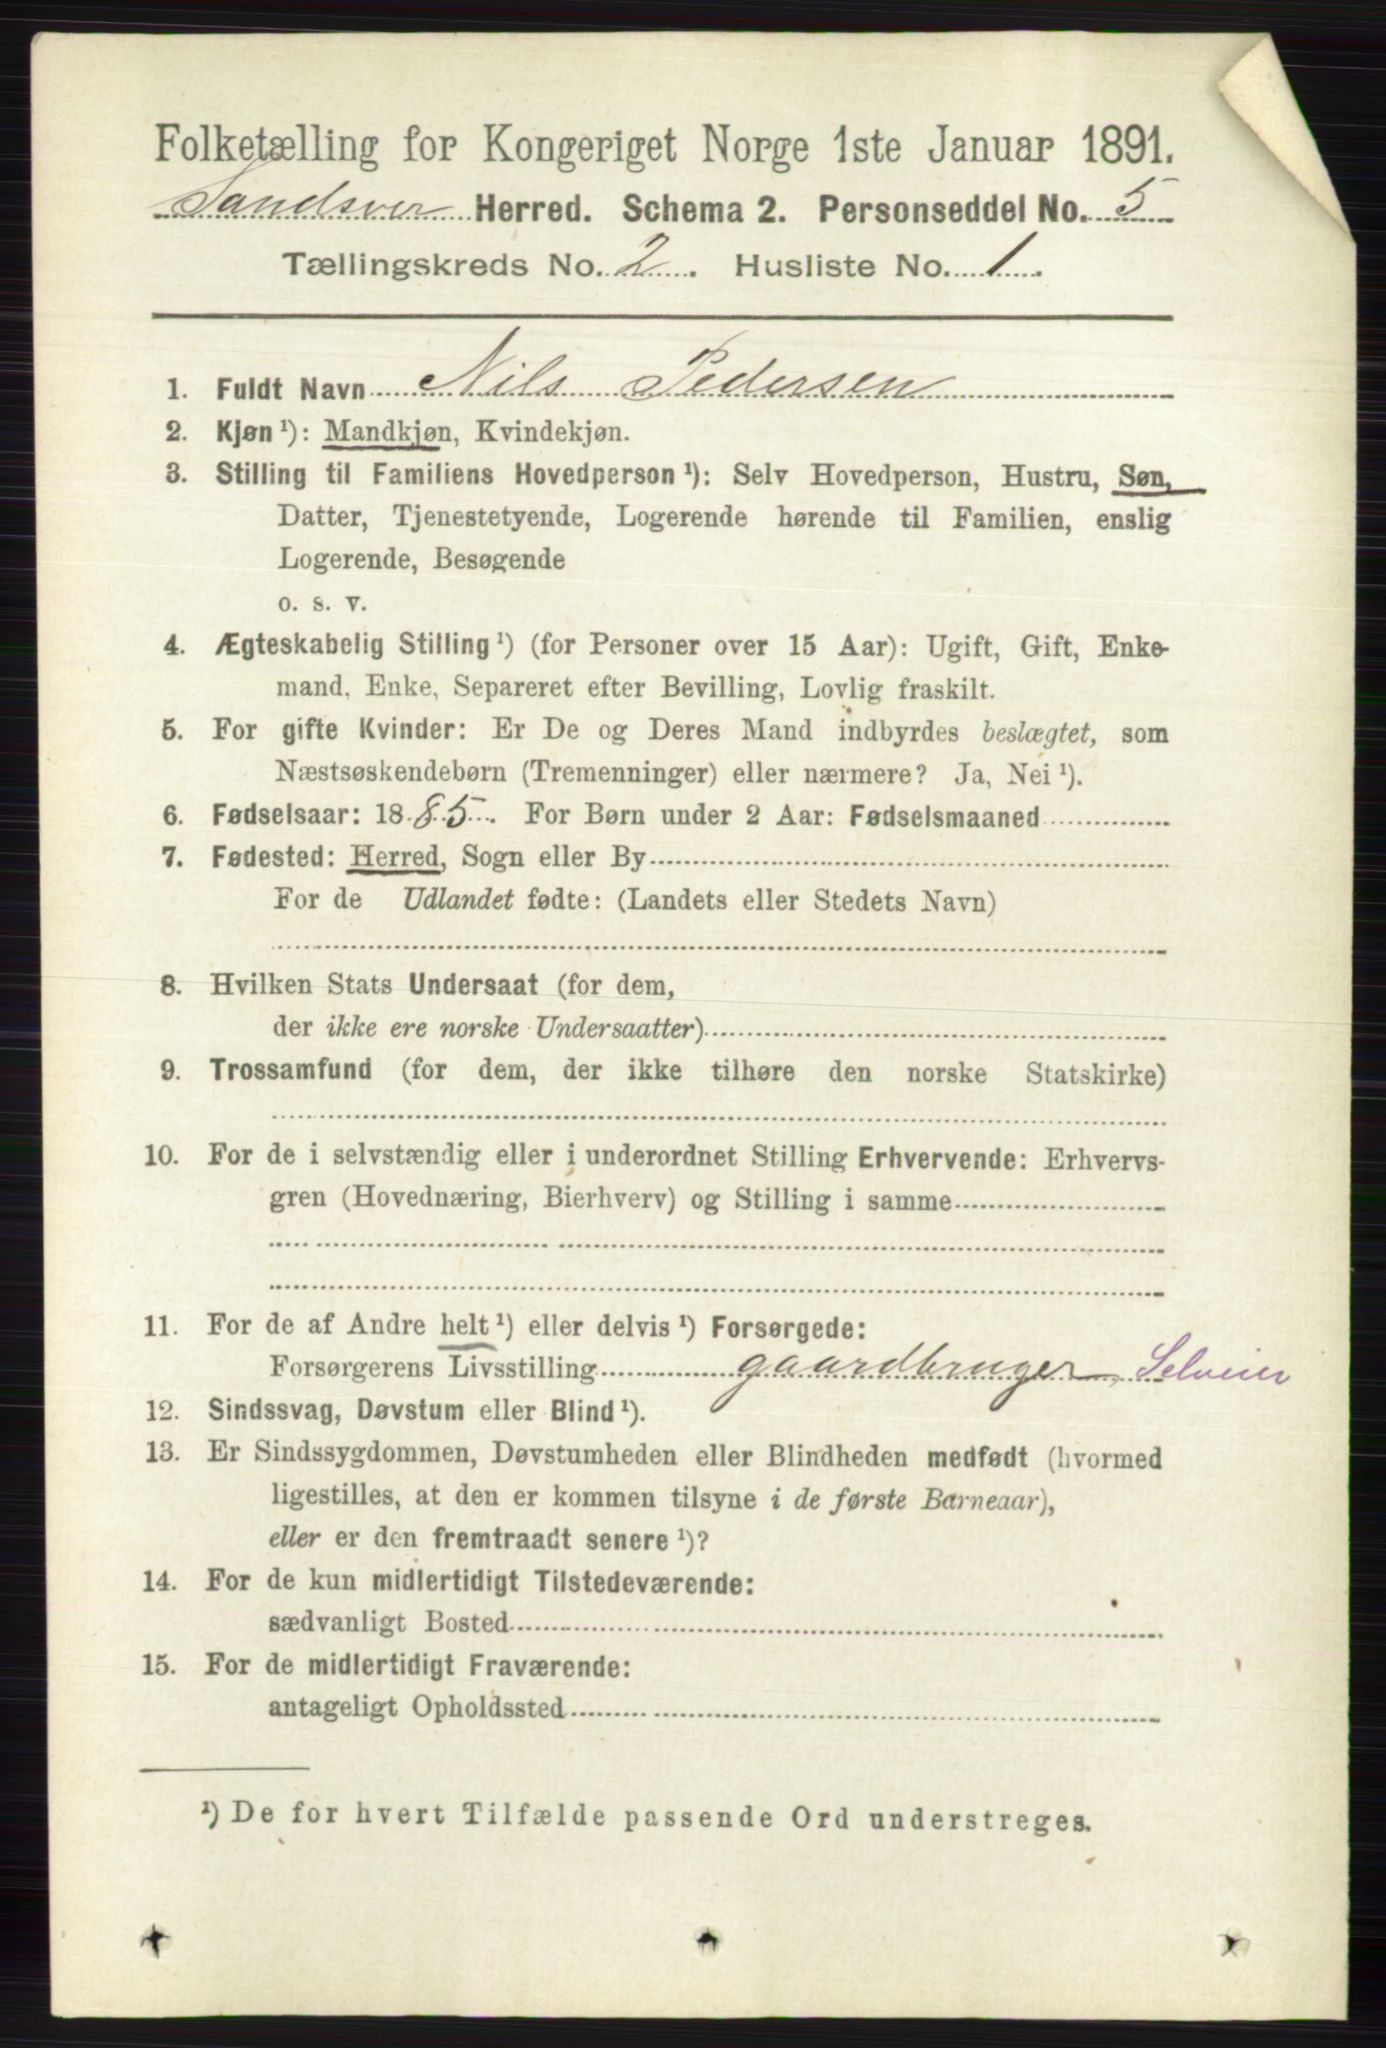 Folketælling for Kongeriget Norge 1ste Januar 1891.
Sandsver Herred. Schema 2. Personseddel No. 5
Tællingskreds No. 2. Husliste No. 1.
1. Fuldt Navn Nils Pedersen
2. Kjøn ¹): Mandkjøn, Kvindekjøn.
3. Stilling til Familiens Hovedperson ¹): Selv Hovedperson, Hustru, Søn,
Datter, Tjenestetyende, Logerende hørende til Familien, enslig
Logerende, Besøgende
o. s. v.
4. Ægteskabelig Stilling ¹) (for Personer over 15 Aar): Ugift, Gift, Enke-
mand, Enke, Separeret efter Bevilling, Lovlig fraskilt.
5. For gifte Kvinder: Er De og Deres Mand indbyrdes beslægtet, som
Næstsøskendebørn (Tremenninger) eller nærmere? Ja, Nei ¹).
6. Fødselsaar: 1885. For Børn under 2 Aar: Fødselsmaaned
7. Fødested: Herred, Sogn eller By
For de Udlandet fødte: (Landets eller Stedets Navn)
8. Hvilken Stats Undersaat (for dem,
der ikke ere norske Undersaatter)
9. Trossamfund (for dem, der ikke tilhøre den norske Statskirke)
10. For de i selvstændig eller i underordnet Stilling Erhvervende: Erhvervs-
gren (Hovednæring, Bierhverv) og Stilling i samme
11. For de af Andre helt ¹) eller delvis ¹) Forsørgede:
Forsørgerens Livsstilling gaardbruger, Selveier
12. Sindssvag, Døvstum eller Blind ¹).
13. Er Sindssygdommen, Døvstumheden eller Blindheden medfødt (hvormed
ligestilles, at den er kommen tilsyne i de første Barneaar),
eller er den fremtraadt senere ¹)?
14. For de kun midlertidigt Tilstedeværende:
sædvanligt Bosted
15. For de midlertidigt Fraværende:
antageligt Opholdssted
¹) De for hvert Tilfælde passende Ord understreges.